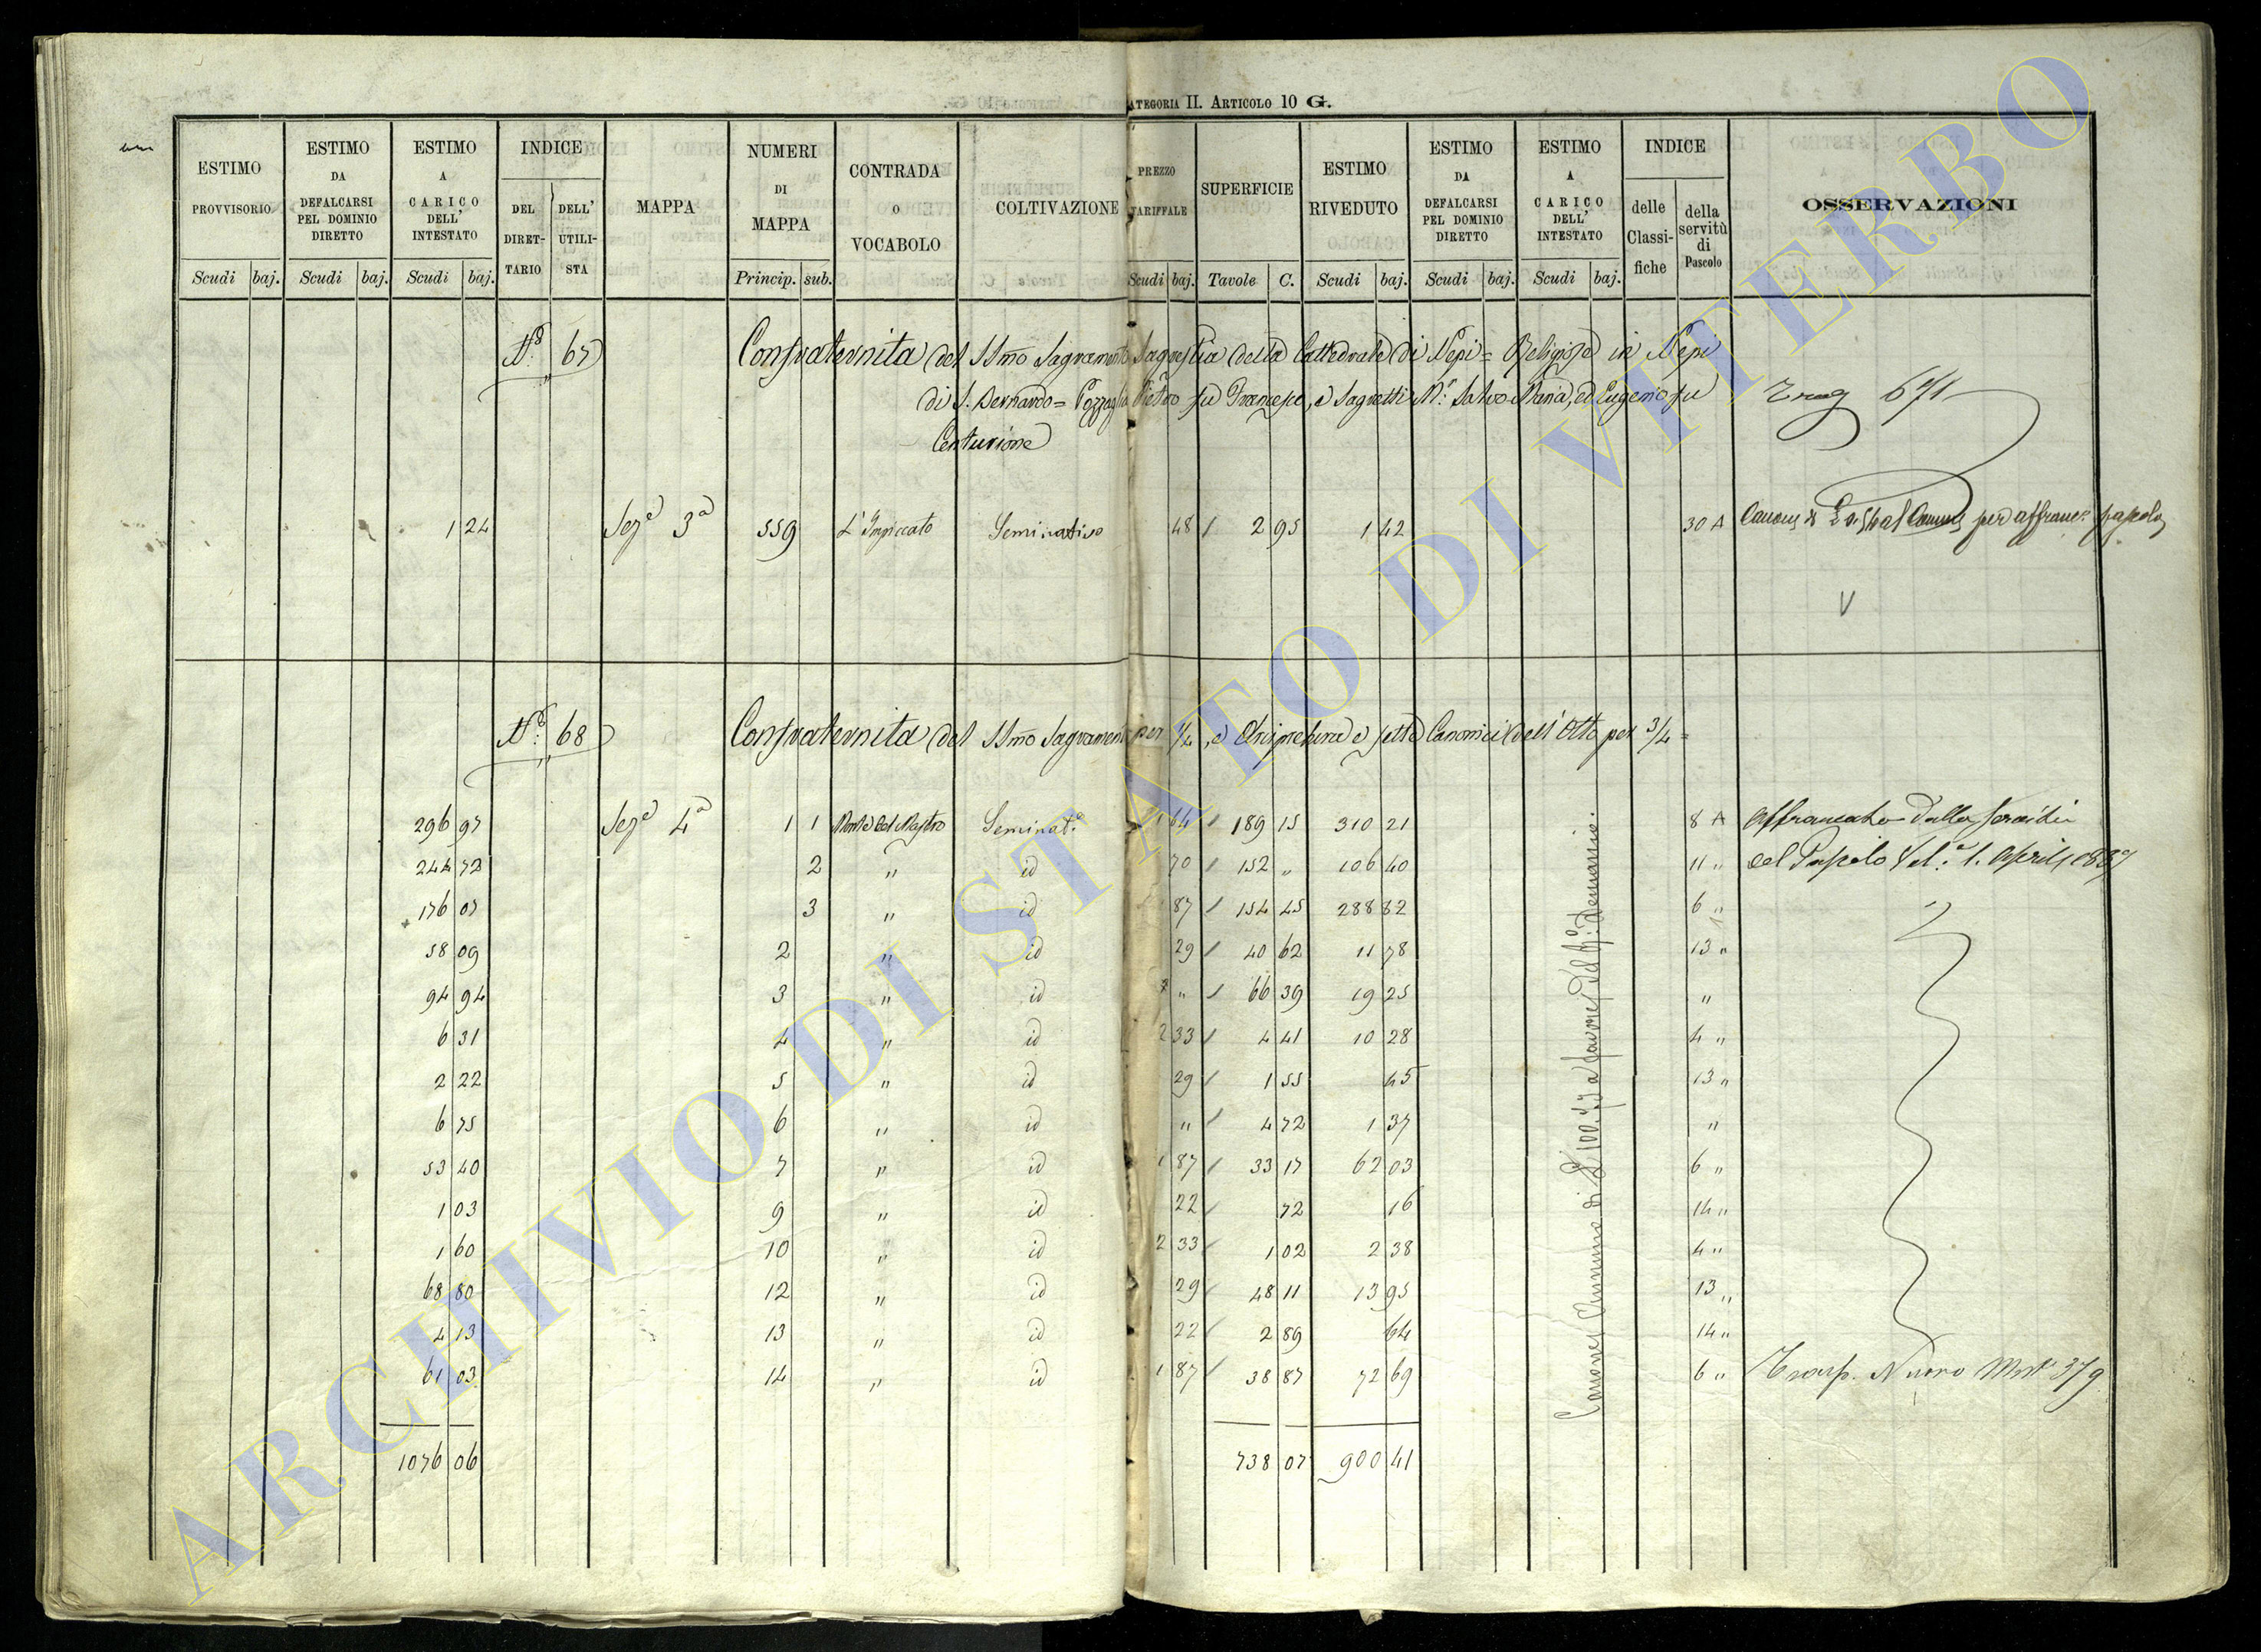 CATEGORIA II. ARTICOLO 10 G.
ESTIMO PROVVISORIO Scudi baj.
ESTIMO DA DEFALCARSI PEL DOMINIO DIRETTO Scudi baj.
ESTIMO A CARICO DELL' INTESTATO Scudi baj.
INDICE DEL DIRET-TARIO DELL' UTILI-STA
MAPPA
NUMERI DI MAPPA Princip. sub.
CONTRADA O VOCABOLO
COLTIVAZIONE
PREZZO TARIFFALE Scudi baj.
SUPERFICIE Tavole C.
ESTIMO RIVEDUTO Scudi baj.
ESTIMO DA DEFALCARSI PEL DOMINIO DIRETTO Scudi baj.
ESTIMO A CARICO DELL' INTESTATO Scudi baj.
INDICE delle Classi-fiche della servitù di Pascolo
OSSERVAZIONI
N.° 67 Confraternita del SSmo Sagramento Sagrestia della Cattedrale di Nepi = Religiose in Nepi
di S. Bernardo = Pozzaglia Pietro fu Francesco, e Sagretti M.a Salvo Maria, ed Eugenio fu
Centurione
1 24 Sez.e 3a 559 L'Impiccato Seminativo 48 2 95 1 42 30 A per affranc.e pascolo
V
N.° 68 Confraternita del SSmo Sagramento per 1/4, e Arcipretura e sette Canonici dell'Otto per 3/4 =
296 97 Sez.e 4a 1 1 Monte del Mastro Seminat.o 1 64 189 15 310 21 8 A Affrancato dalla servitù
244 72 2 " id 70 152 " 106 40 11 " del Pascolo Vel.a 1. Aprile 1889
176 07 3 " id 87 154 45 288 82 6 "
58 09 2 " id 29 40 62 11 78 13 "
94 94 3 " id " 66 39 19 25 "
6 31 4 " id 2 33 4 41 10 28 4 "
2 22 5 " id 29 1 55 45 13 "
6 75 6 " id " 4 72 1 37 "
53 40 7 " id 1 87 33 17 62 03 6 "
1 03 9 " id 22 72 16 14 "
1 60 10 " id 2 33 1 02 2 38 4 "
68 80 12 " id 29 48 11 13 95 13 "
4 13 13 " id 22 2 89 64 14 "
61 03 14 " id 1 87 38 87 72 69 6 " Trasp. Nuovo 379
1076 06 738 07 900 41
Canone Annuo di £ 100.57 a favore del R.o Demanio.
ARCHIVIO DI STATO DI VITERBO